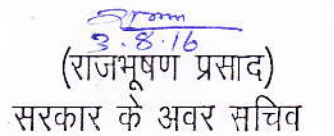 3.8.16
(राजभूषण प्रसाद)
सरकार के अवर सचिव